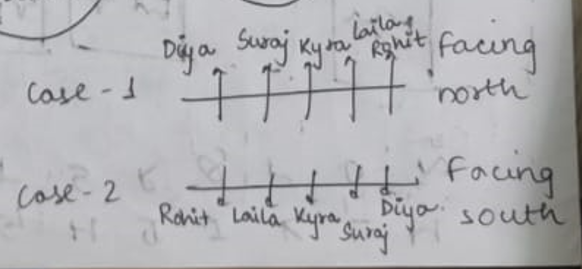 Diya Suraj Kyra Laila Rohit Facing
Case - 1 north
Case - 2 Facing
Rohit Laila Kyra Suraj Diya south